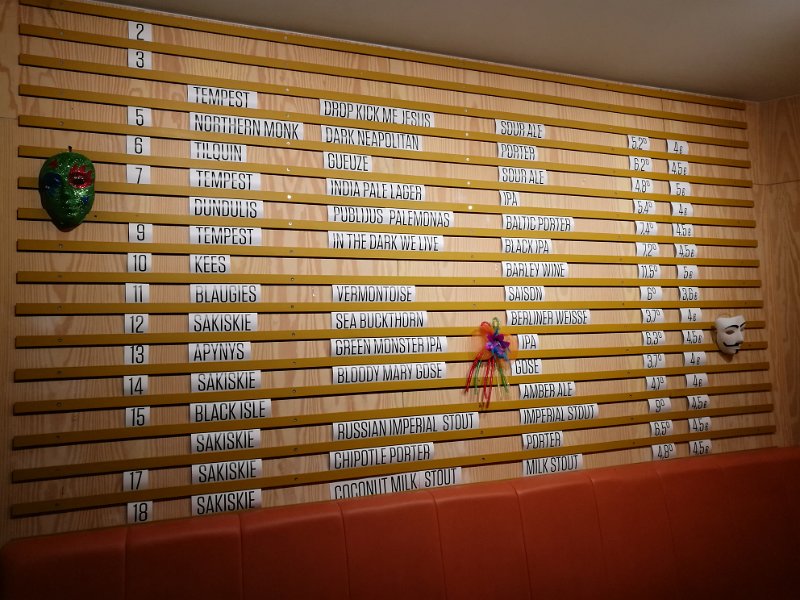 2
3
TEMPEST DROP KICK ME JESUS SOUR ALE 5,2° 4€
5 NORTHERN MONK DARK NEAPOLITAN PORTER 6,2° 4,5€
6 TILQUIN GUEUZE SOUR ALE 4,8° 5€
7 TEMPEST INDIA PALE LAGER IPA 5,4° 4€
DUNDULIS PUBLIJUS PALEMONAS BALTIC PORTER 7,4° 4,5€
9 TEMPEST IN THE DARK WE LIVE BLACK IPA 7,2° 4,5€
10 KEES BARLEY WINE 11,5° 5€
11 BLAUGIES VERMONTOISE SAISON 6° 3,6€
12 SAKISKIE SEA BUCKTHORN BERLINER WEISSE 3,7° 4€
13 APYNYS GREEN MONSTER IPA IPA 6,3° 4,5€
14 SAKISKIE BLOODY MARY GOSE GOSE 3,7° 4€
15 BLACK ISLE AMBER ALE 4€
SAKISKIE RUSSIAN IMPERIAL STOUT IMPERIAL STOUT 9° 4,5€
17 SAKISKIE CHIPOTLE PORTER PORTER 6,5° 4,5€
18 SAKISKIE COCONUT MILK STOUT MILK STOUT 4,8° 4,5€